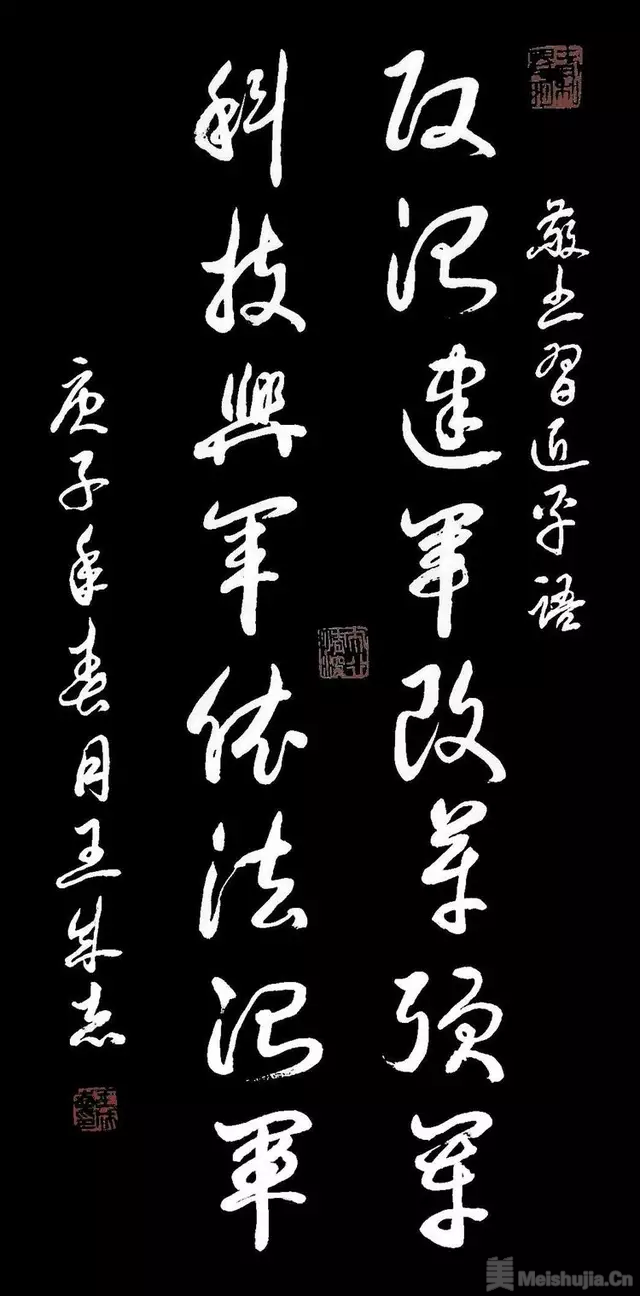 敬书习近平语
政治建军改革强军
科技興军依法治军
庚子年春月王成志
美 Meishujia.Cn